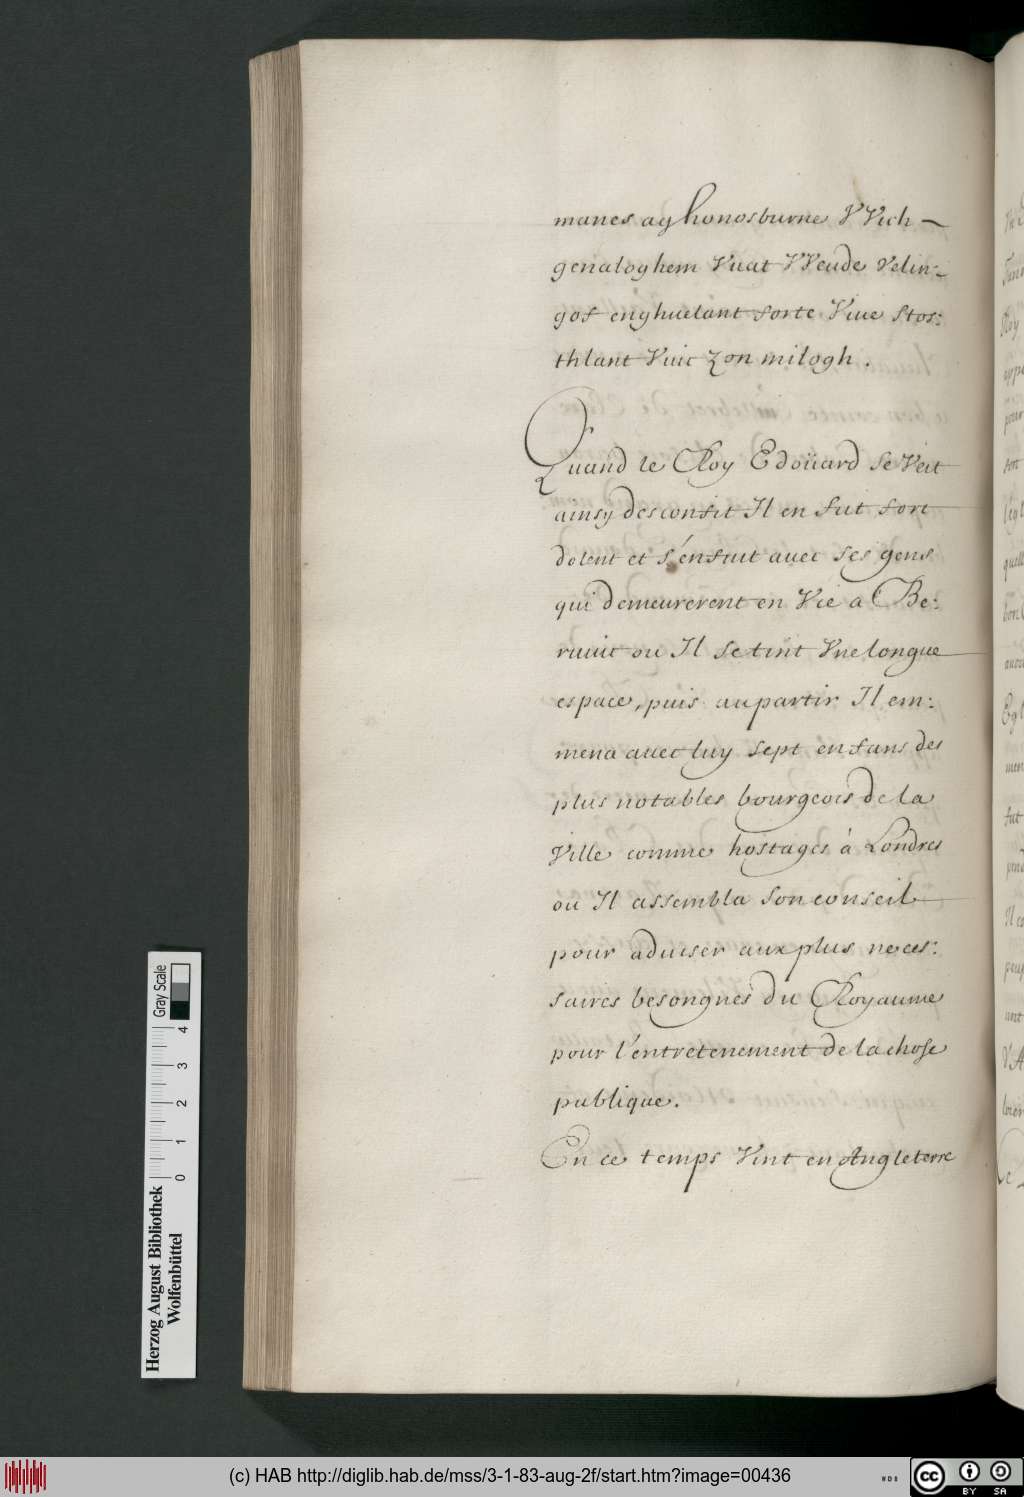 manes ag honosburne VVich –
genaloghem Vuat VVeude Velin:
gos enghuelant sorte Viue Stos:
thlant Vuit Zon milogh.
Quand le Roy Edoüard se Veit
ainsy desconfit Il en fut fort
dolent et s'enfuit auec ses gens
qui demeurerent en Vie a Be:
ruuic ou Il se tint Vne longue
espace, puis au partir Il em:
mena auec luy sept enfans des
plus notables bourgeois de la
Ville comme hostages à Londres
ou Il assembla son conseil
pour aduiser aux plus neces:
saires besongnes du Royaume
pour l'entretenement de la chose
publique.
En ce temps Vint en Angleterre
Gray Scale
0 1 2 3 4
Herzog August Bibliothek
Wolfenbüttel
(c) HAB http://diglib.hab.de/mss/3-1-83-aug-2f/start.htm?image=00436
WDB
cc BY SA